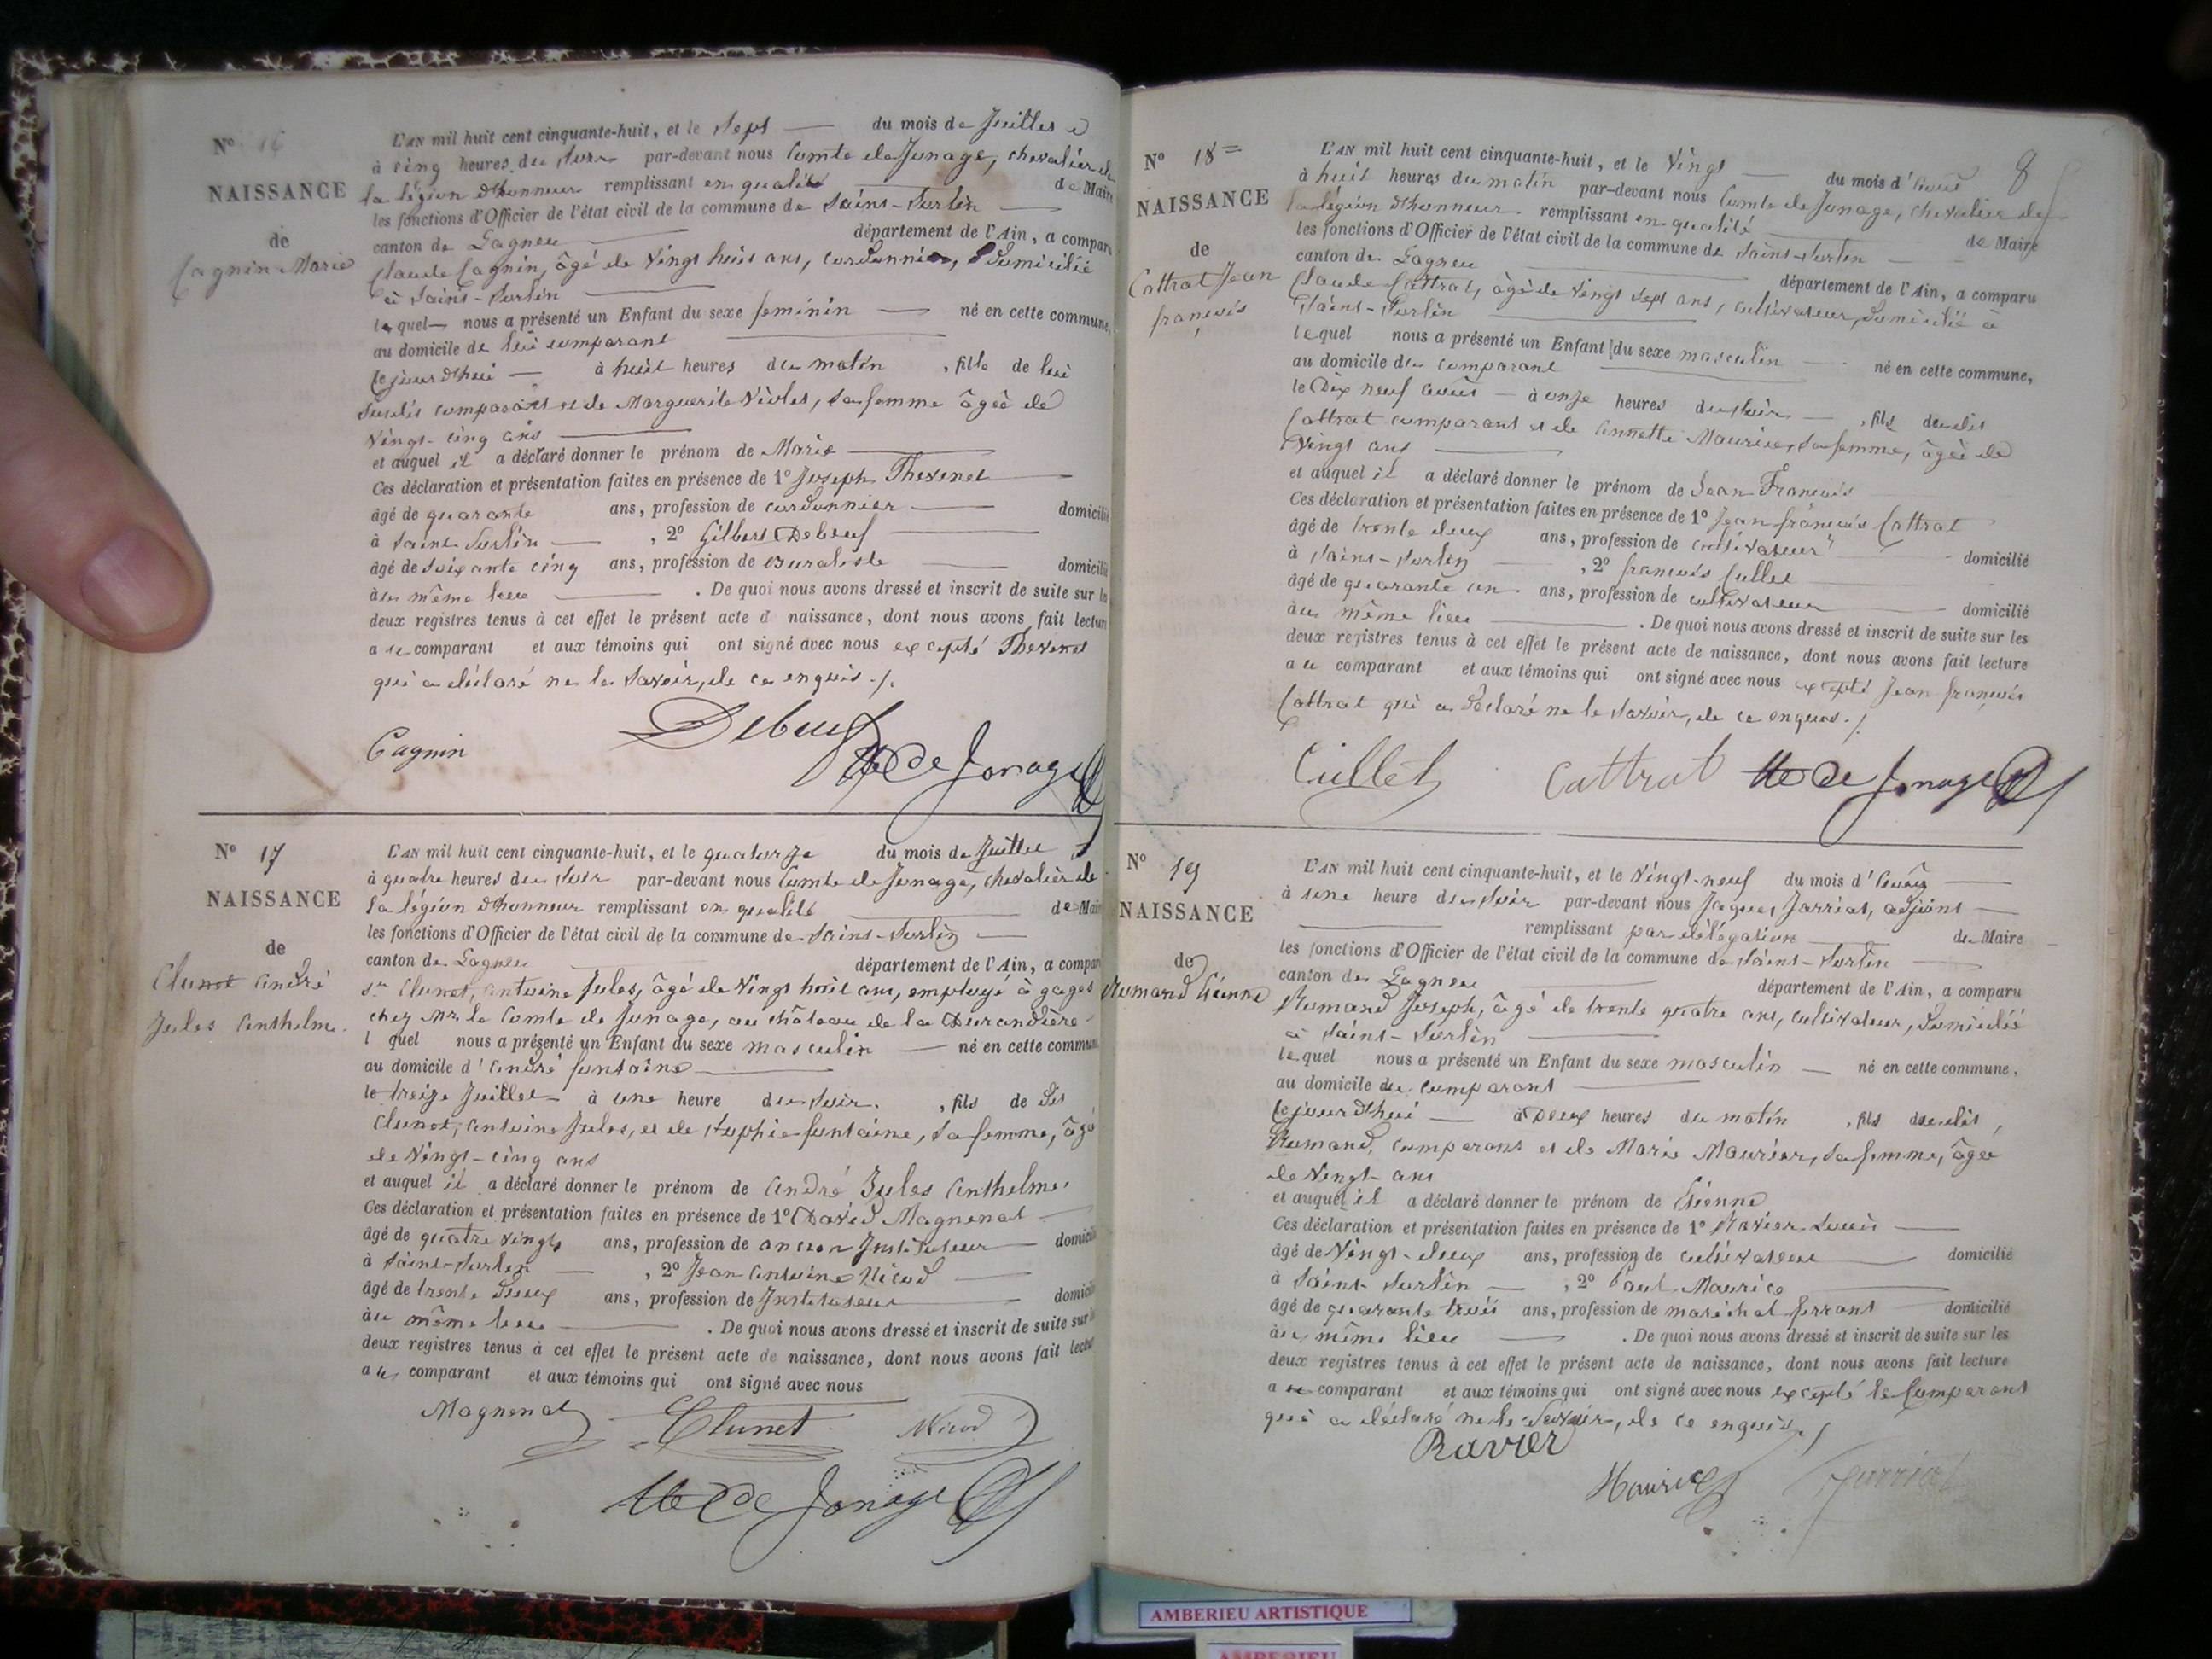 N° 16
NAISSANCE
de
Cagnin Marie
L'AN mil huit cent cinquante-huit, et le sept du mois de Juillet
à cinq heures du soir par-devant nous Comte de Jonage, chevalier de
la légion d'honneur remplissant en qualité de Maire
les fonctions d'Officier de l'état civil de la commune de Saint-Sorlin
canton de Lagneu département de l'Ain, a comparu
Claude Cagnin, âgé de vingt huit ans, cordonnier, domicilié
à Saint-Sorlin
lequel nous a présenté un Enfant du sexe feminin né en cette commune,
au domicile de lui comparant
ce jourd'hui à huit heures du matin , fille de lui
susdit comparant et de Marguerite Violet, sa femme âgée de
vingt-cinq ans
et auquel il a déclaré donner le prénom de Marie
Ces déclaration et présentation faites en présence de 1° Joseph Thevenet
âgé de quarante ans, profession de cordonnier domicilié
à Saint Sorlin , 2° Gilbert Debeuf
âgé de soixante cinq ans, profession de Buraliste domicilié
au même lieu . De quoi nous avons dressé et inscrit de suite sur les
deux registres tenus à cet effet le présent acte d naissance, dont nous avons fait lecture
a u comparant et aux témoins qui ont signé avec nous excepté Thevenet
qui a déclaré ne le savoir, de ce enquis ./.
Cagnin Debeuf Cte de Jonage
N° 17
NAISSANCE
de
Clunet André
Jules Anthelme.
L'AN mil huit cent cinquante-huit, et le quatorze du mois de Juillet
à quatre heures du soir par-devant nous Comte de Jonage, chevalier de
la légion d'honneur remplissant en qualité de Maire
les fonctions d'Officier de l'état civil de la commune de Saint-Sorlin
canton de Lagneu département de l'Ain, a comparu
sr Clunet, Antoine Jules, âgé de vingt huit ans, employé à gages
chez Mr le Comte de Jonage, au château de la Durandière
l quel nous a présenté un Enfant du sexe masculin né en cette commune
au domicile d'André fontaine
le treize Juillet à une heure du soir. , fils de dit
Clunet, Antoine Jules, et de Sophie fontaine, sa femme, âgé
de vingt-cinq ans
et auquel il a déclaré donner le prénom de André Jules Anthelme.
Ces déclaration et présentation faites en présence de 1° David Magnenat
âgé de quatre vingts ans, profession de ancien Instituteur domicilié
à Saint-Sorlin , 2° Jean Antoine Nicod
âgé de trente deux ans, profession de Instituteur domicilié
au même lieu . De quoi nous avons dressé et inscrit de suite sur les
deux registres tenus à cet effet le présent acte de naissance, dont nous avons fait lecture
a u comparant et aux témoins qui ont signé avec nous
Magnenat Clunet Nicod
Cte de Jonage
8
N° 18
NAISSANCE
de
Cottrat Jean
françois
L'AN mil huit cent cinquante-huit, et le vingt du mois d'Août
à huit heures du matin par-devant nous Comte de Jonage, chevalier de
la légion d'honneur remplissant en qualité de Maire
les fonctions d'Officier de l'état civil de la commune de Saint-Sorlin
canton de Lagneu département de l'Ain, a comparu
Claude Cottrat, âgé de vingt sept ans, cultivateur, domicilié à
Saint-Sorlin
lequel nous a présenté un Enfant du sexe masculin né en cette commune,
au domicile du comparant
le Dix neuf août à onze heures du soir , fils du dit
Cottrat comparant et de Annette Maurice, sa femme, âgée de
vingt ans
et auquel il a déclaré donner le prénom de Jean François
Ces déclaration et présentation faites en présence de 1° Jean françois Cottrat
âgé de trente deux ans, profession de cultivateur domicilié
à Saint-Sorlin , 2° françois Cullet
âgé de quarante un ans, profession de cultivateur domicilié
au même lieu . De quoi nous avons dressé et inscrit de suite sur les
deux registres tenus à cet effet le présent acte de naissance, dont nous avons fait lecture
a u comparant et aux témoins qui ont signé avec nous excepté Jean françois
Cottrat qui a déclaré ne le savoir, de ce enquis ./.
Cullet Cattrat Cte de Jonage
N° 19
NAISSANCE
de
Rumand Etienne
L'AN mil huit cent cinquante-huit, et le vingt-neuf du mois d'Août
à une heure du soir par-devant nous Jaques Jarriat, adjoint
remplissant par délégation du Maire
les fonctions d'Officier de l'état civil de la commune de Saint-Sorlin
canton de Lagneu département de l'Ain, a comparu
Rumand Joseph, âgé de trente quatre ans, cultivateur, domicilié
à Saint-Sorlin
lequel nous a présenté un Enfant du sexe masculin né en cette commune,
au domicile du comparant
ce jourd'hui à Deux heures du matin , fils du dit
Rumand, comparant et de Marie Maurier, sa femme, âgée
de vingt ans
et auquel il a déclaré donner le prénom de Etienne
Ces déclaration et présentation faites en présence de 1° Ravier Louis
âgé de vingt-deux ans, profession de cultivateur domicilié
à Saint Sorlin , 2° Paul Maurice
âgé de quarante trois ans, profession de maréchal ferrant domicilié
au même lieu . De quoi nous avons dressé et inscrit de suite sur les
deux registres tenus à cet effet le présent acte de naissance, dont nous avons fait lecture
a u comparant et aux témoins qui ont signé avec nous excepté le Comparant
qui a déclaré ne le savoir, de ce enquis ./
Ravier
Maurice Jarriat
AMBERIEU ARTISTIQUE
AMBERIEU